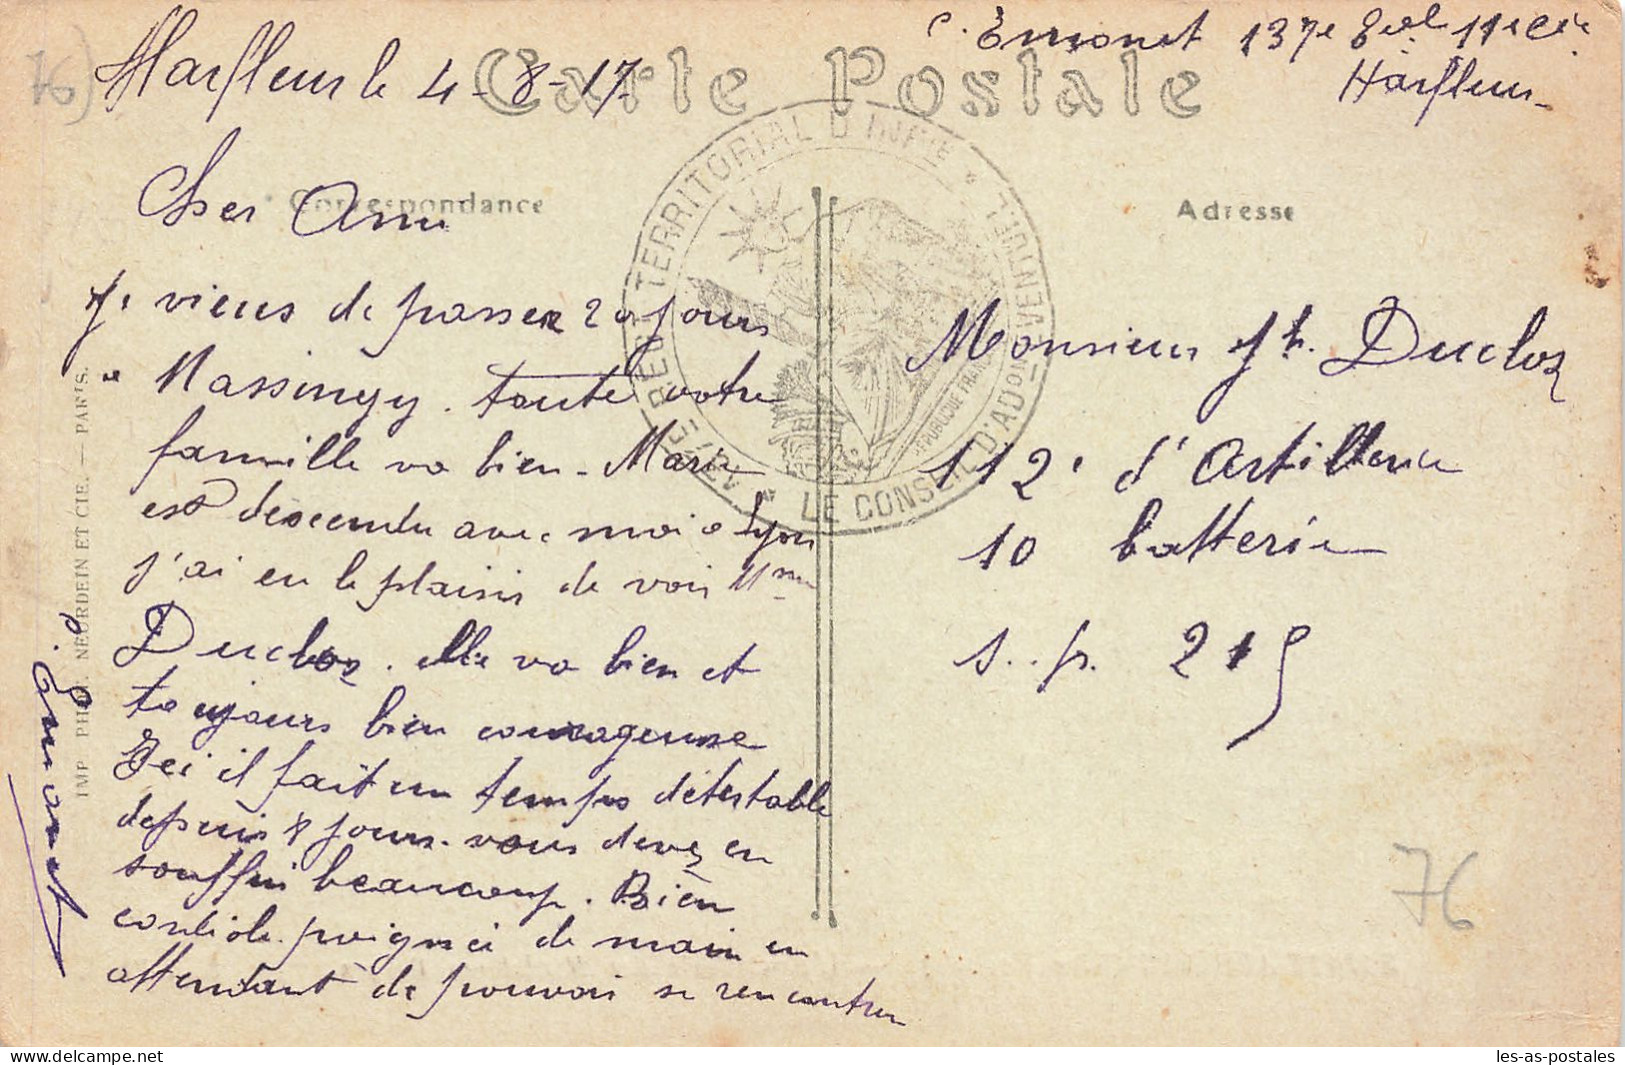 76)
Harfleur le 4-8-17
C. Emonet 137e Bal 11e Cie
Harfleur
Carte Postale
Correspondance
Adresse
Cher Ami
Je viens de passer 20 jours
a Massingy. toute votre
famille va bien - Marie
est descendu avec moi a Lyon
j'ai eu le plaisir de voir Mme
Ducloz. elle va bien et
toujours bien courageuse
Ici il fait un temps détestable
depuis 8 jours. vous devez en
souffrir beaucoup. Bien
cordiale poignei de main en
attendant de pouvoir se rencontrer
Emonet
Monsieur Jh. Ducloz
112e d'Artillerie
10 batterie
s. p. 215
76
REGT TERRITORIAL D'INFIE * LE CONSEIL D'ADON EVENTUEL *
REPUBLIQUE FRANC
IMP. PHOT. NEURDEIN ET CIE. — PARIS.
delcampe.net
les-as-postales